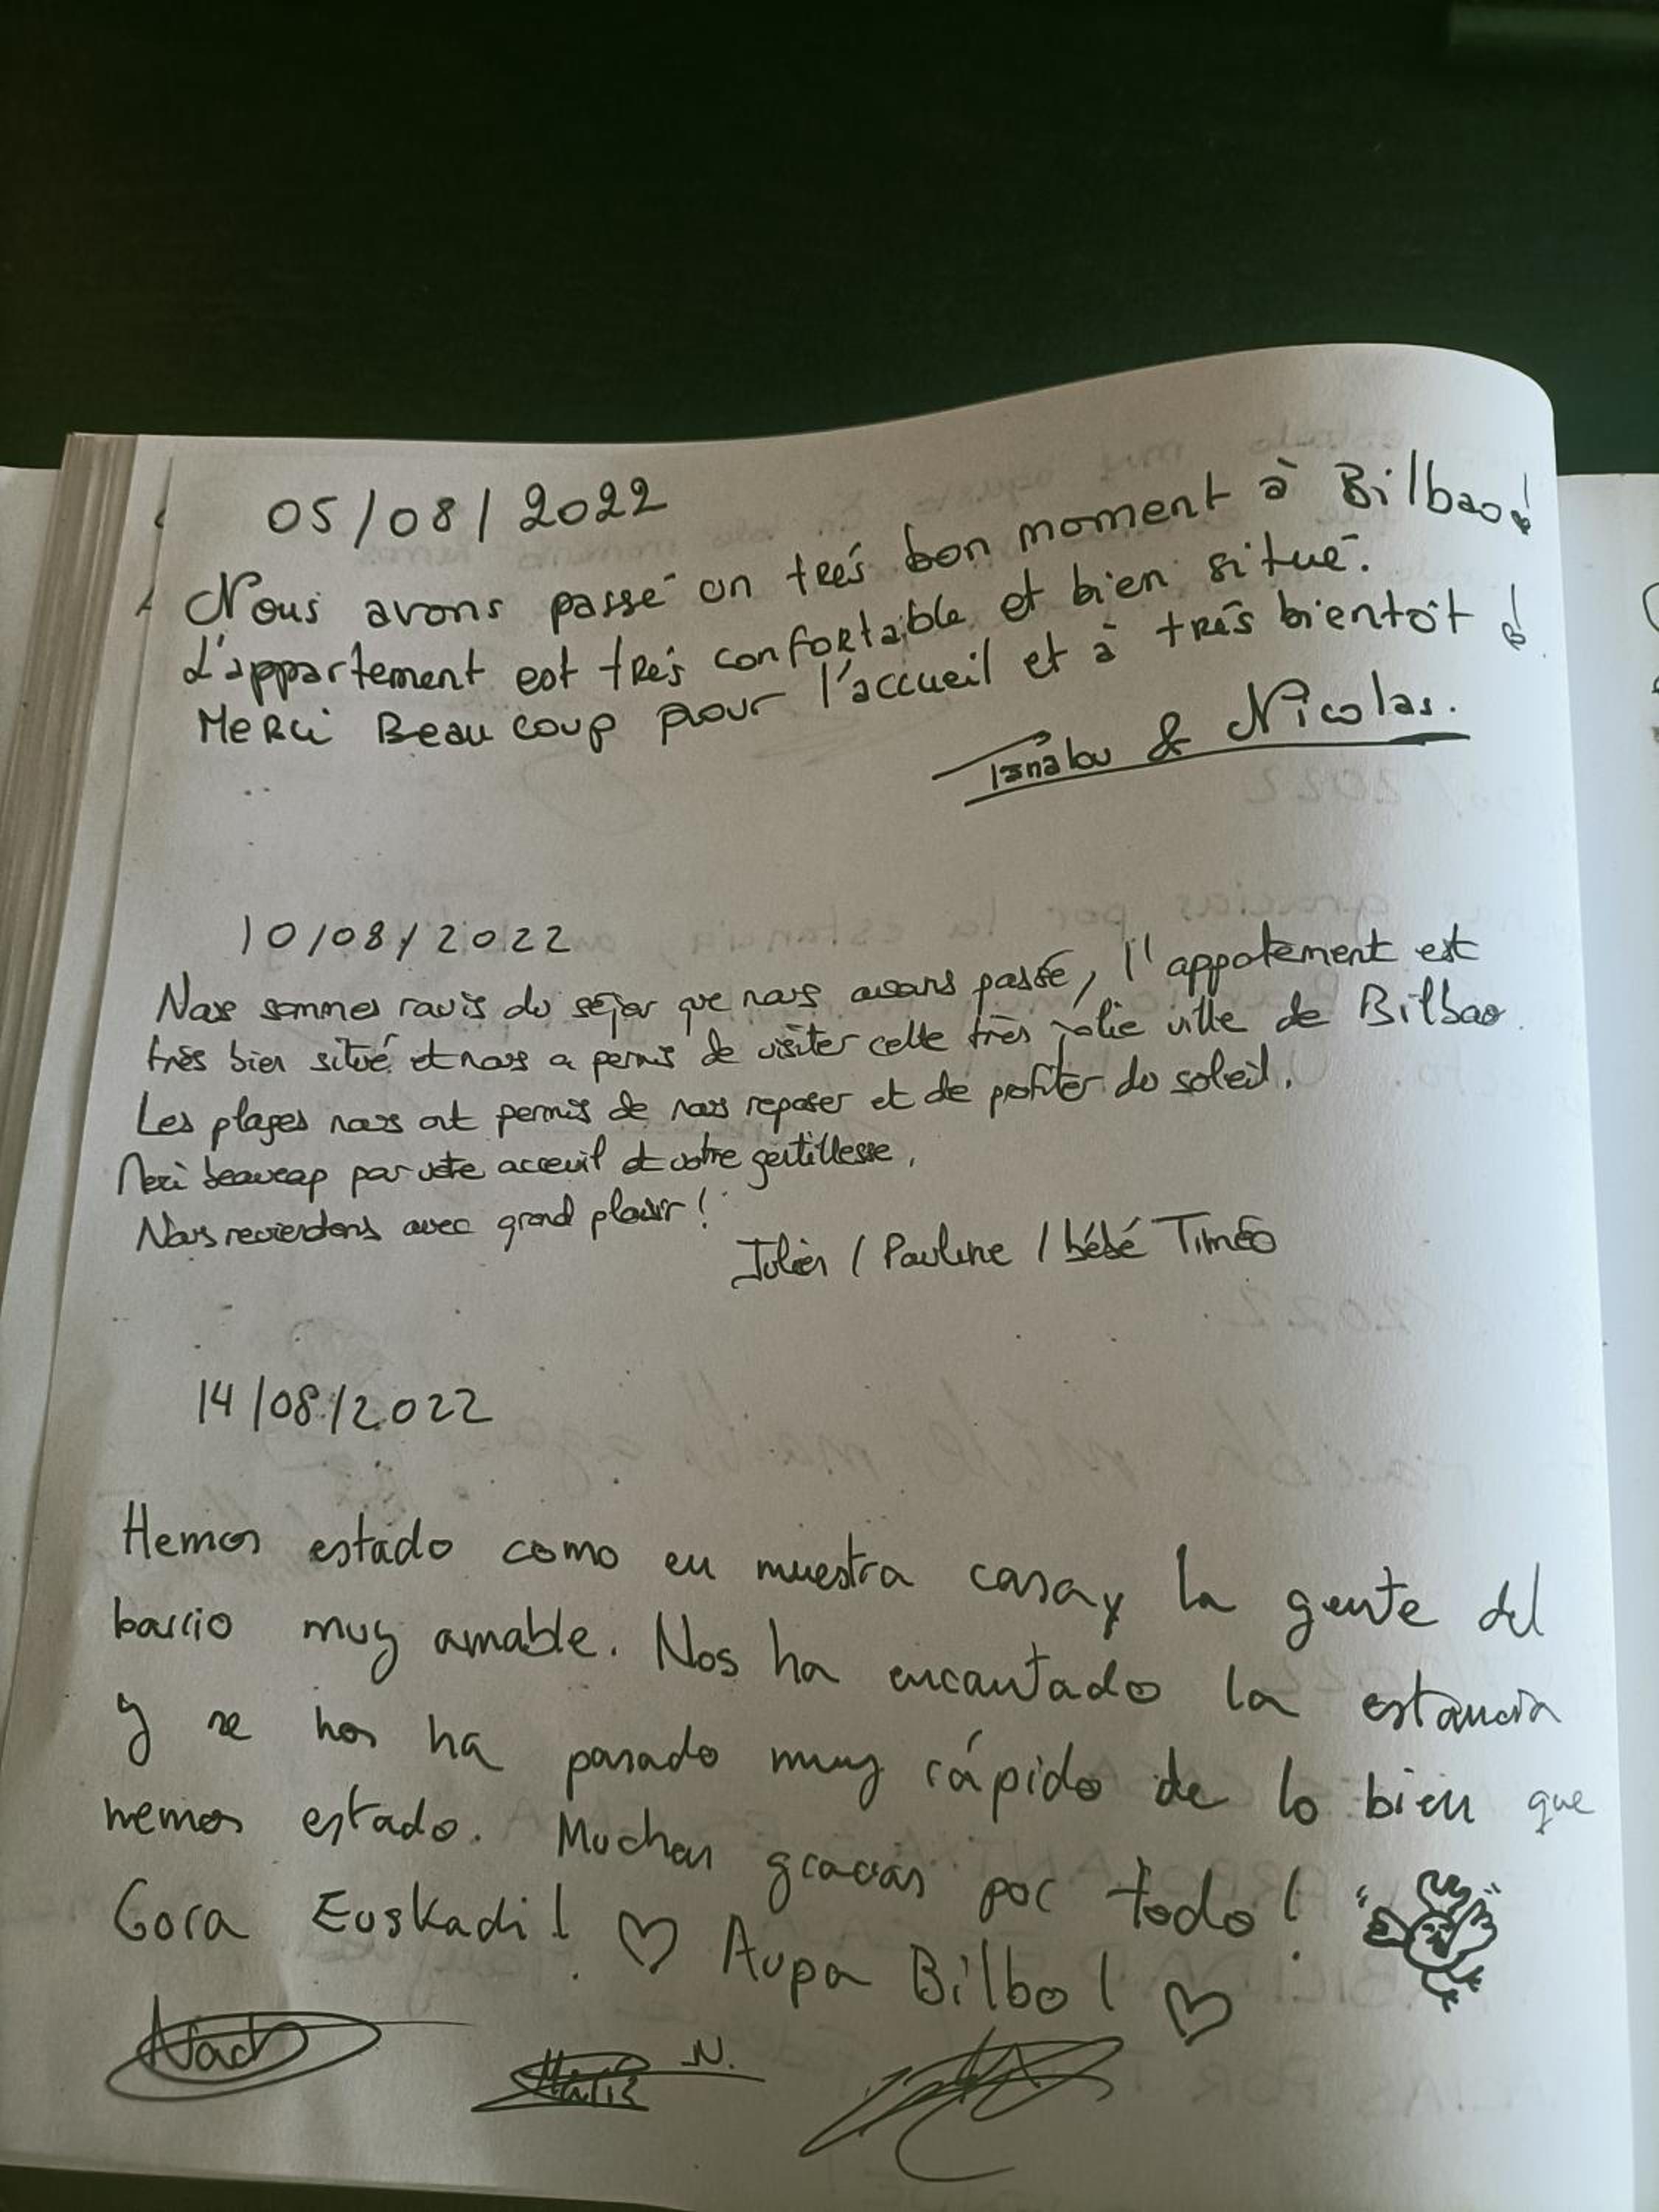 05/08/2022
Nous avons passé un très bon moment à Bilbao!
L'appartement est très confortable et bien situé.
Merci Beaucoup pour l'accueil et à très bientôt!
& Nicolas.
10/08/2022
Nous sommes ravis du séjour que nous avons passé, l'appartement est
très bien situé et nous a permis de visiter cette très jolie ville de Bilbao.
Les plages nous ont permis de nous reposer et de profiter du soleil.
Merci beaucoup pour votre acceuil et votre gentillesse,
Nous reviendrons avec grand plaisir!
Julien / Pauline / bébé Timéo
14/08/2022
Hemos estado como en nuestra casa y la gente del
barrio muy amable. Nos ha encantado la estancia
y se nos ha pasado muy rápido de lo bien que
hemos estado. Muchas gracias por todo!
Gora Euskadi! ♡ Aupa Bilbo! ♡
N.